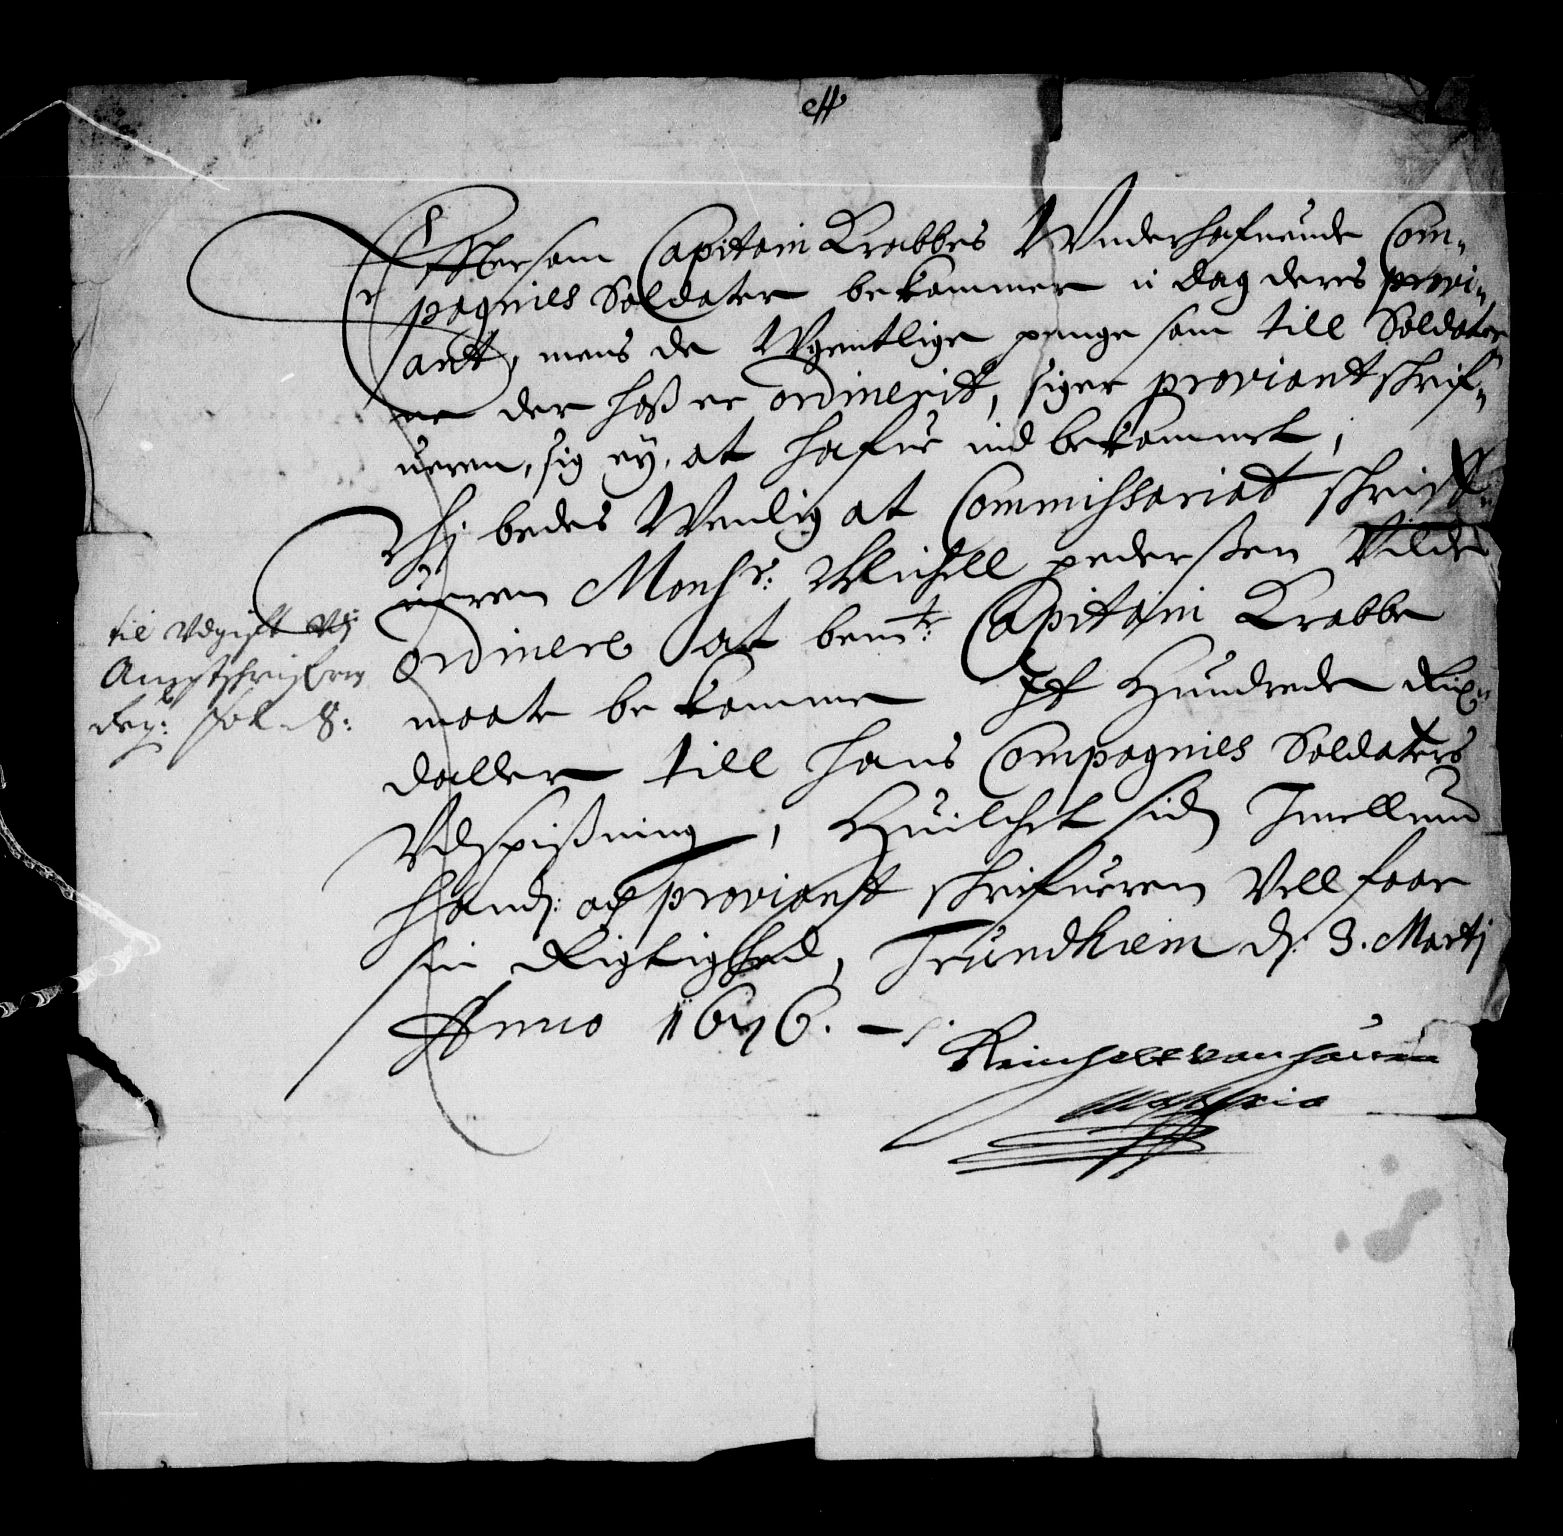 Efftersom Capitain Krabbes Underhafuende Com-
pagnies Soldater bekommer i dag deris provi-
ant, mens de Ugentlige penge som till Soldater
ne der hoß er ordinerit, siger proviantschrif-
ueren, sig ey, at hafue ind bekommet,
Thj bedes Wenlig at Commissariat schriff-
ueren Monsr: Michell pederßen Vilde
ordinere at bemte: Capitain Krabbe
maate be komme Et Hundrede Rix-
daller till hans Compagnies Soldaters
Udspißning, Huilchet siden Imellum
hand: och proviant schrifueren Vell faar
sin Rigtighed, Trundhiem d: 3. Martj
Anno 1676.
Reinholt von Hauen
Mappria
til Udgift Ved
Amptschrifren
Reg: fol. 8: